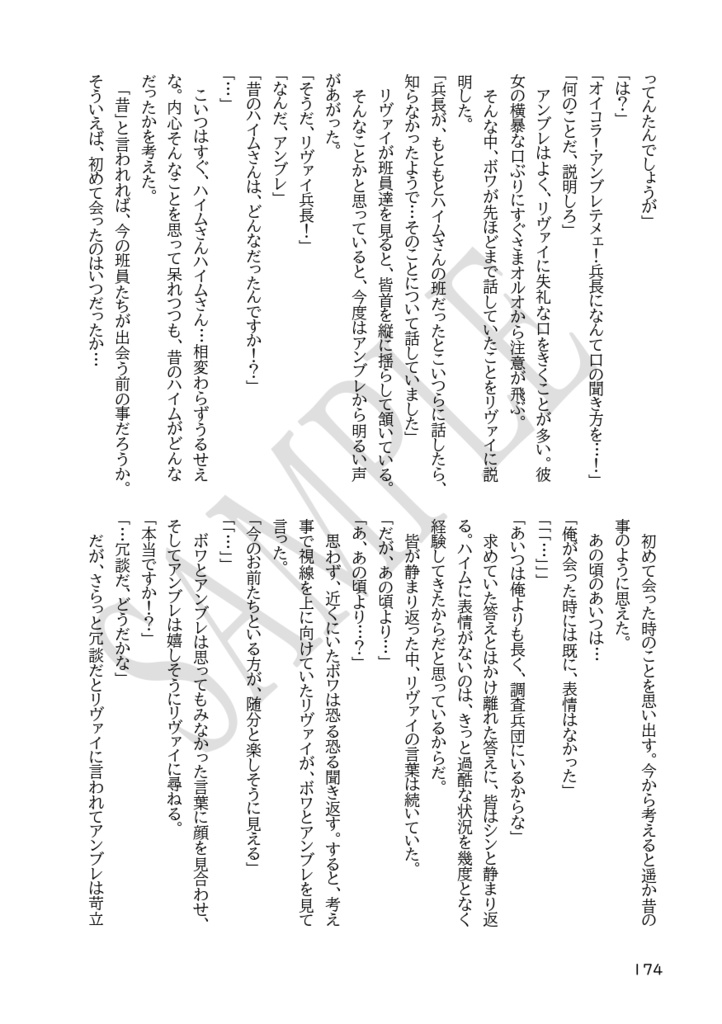 ってんたんでしょうが」
「は？」
「オイコラ！アンブレテメェ！兵長になんて口の聞き方を…！」
「何のことだ、説明しろ」
　アンブレはよく、リヴァイに失礼な口をきくことが多い。彼
女の横暴な口ぶりにすぐさまオルオから注意が飛ぶ。
　そんな中、ボワが先ほどまで話していたことをリヴァイに説
明した。
「兵長が、もともとハイムさんの班だったとこいつらに話したら、
知らなかったようで…そのことについて話していました」
　リヴァイが班員達を見ると、皆首を縦に揺らして頷いている。
　そんなことかと思っていると、今度はアンブレから明るい声
があがった。
「そうだ、リヴァイ兵長！」
「なんだ、アンブレ」
「昔のハイムさんは、どんなだったんですか！？」
「…」
　こいつはすぐ、ハイムさんハイムさん…相変わらずうるせえ
な。内心そんなことを思って呆れつつも、昔のハイムがどんな
だったかを考えた。
　「昔」と言われれば、今の班員たちが出会う前の事だろうか。
そういえば、初めて会ったのはいつだったか…
　初めて会った時のことを思い出す。今から考えると遥か昔の
事のように思えた。
　あの頃のあいつは…
「俺が会った時には既に、表情はなかった」
「「「…」」」
「あいつは俺よりも長く、調査兵団にいるからな」
　求めていた答えとはかけ離れた答えに、皆はシンと静まり返
る。ハイムに表情がないのは、きっと過酷な状況を幾度となく
経験してきたからだと思っているからだ。
　皆が静まり返った中、リヴァイの言葉は続いていた。
「だが、あの頃より…」
「あ、あの頃より…？」
　思わず、近くにいたボワは恐る恐る聞き返す。すると、考え
事で視線を上に向けていたリヴァイが、ボワとアンブレを見て
言った。
「今のお前たちといる方が、随分と楽しそうに見える」
「「…」」
　ボワとアンブレは思ってもみなかった言葉に顔を見合わせ、
そしてアンブレは嬉しそうにリヴァイに尋ねる。
「本当ですか！？」
「…冗談だ、どうだかな」
　だが、さらっと冗談だとリヴァイに言われてアンブレは苛立
174
SAMPLE